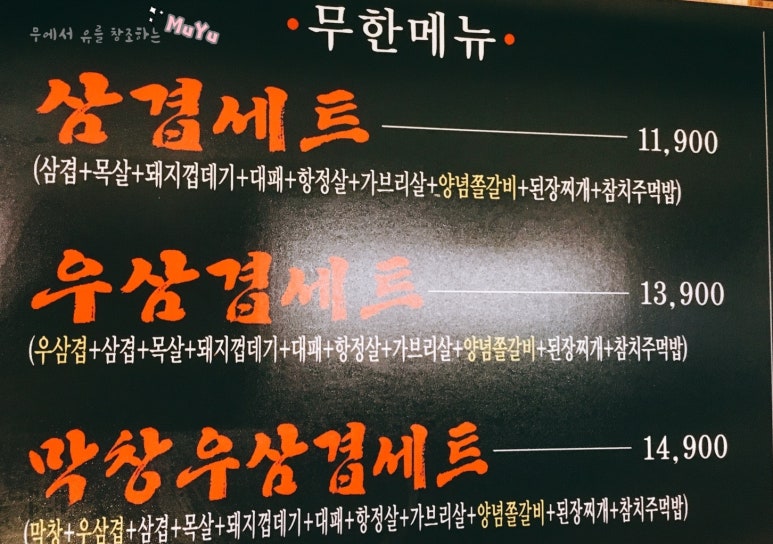 무에서 유를 창조하는 MuYu
•무한메뉴•
삼겹세트 11,900
(삼겹+목살+돼지껍데기+대패+항정살+가브리살+양념쫄갈비+된장찌개+참치주먹밥)
우삼겹세트 13,900
(우삼겹+삼겹+목살+돼지껍데기+대패+항정살+가브리살+양념쫄갈비+된장찌개+참치주먹밥)
막창우삼겹세트 14,900
(막창+우삼겹+삼겹+목살+돼지껍데기+대패+항정살+가브리살+양념쫄갈비+된장찌개+참치주먹밥)